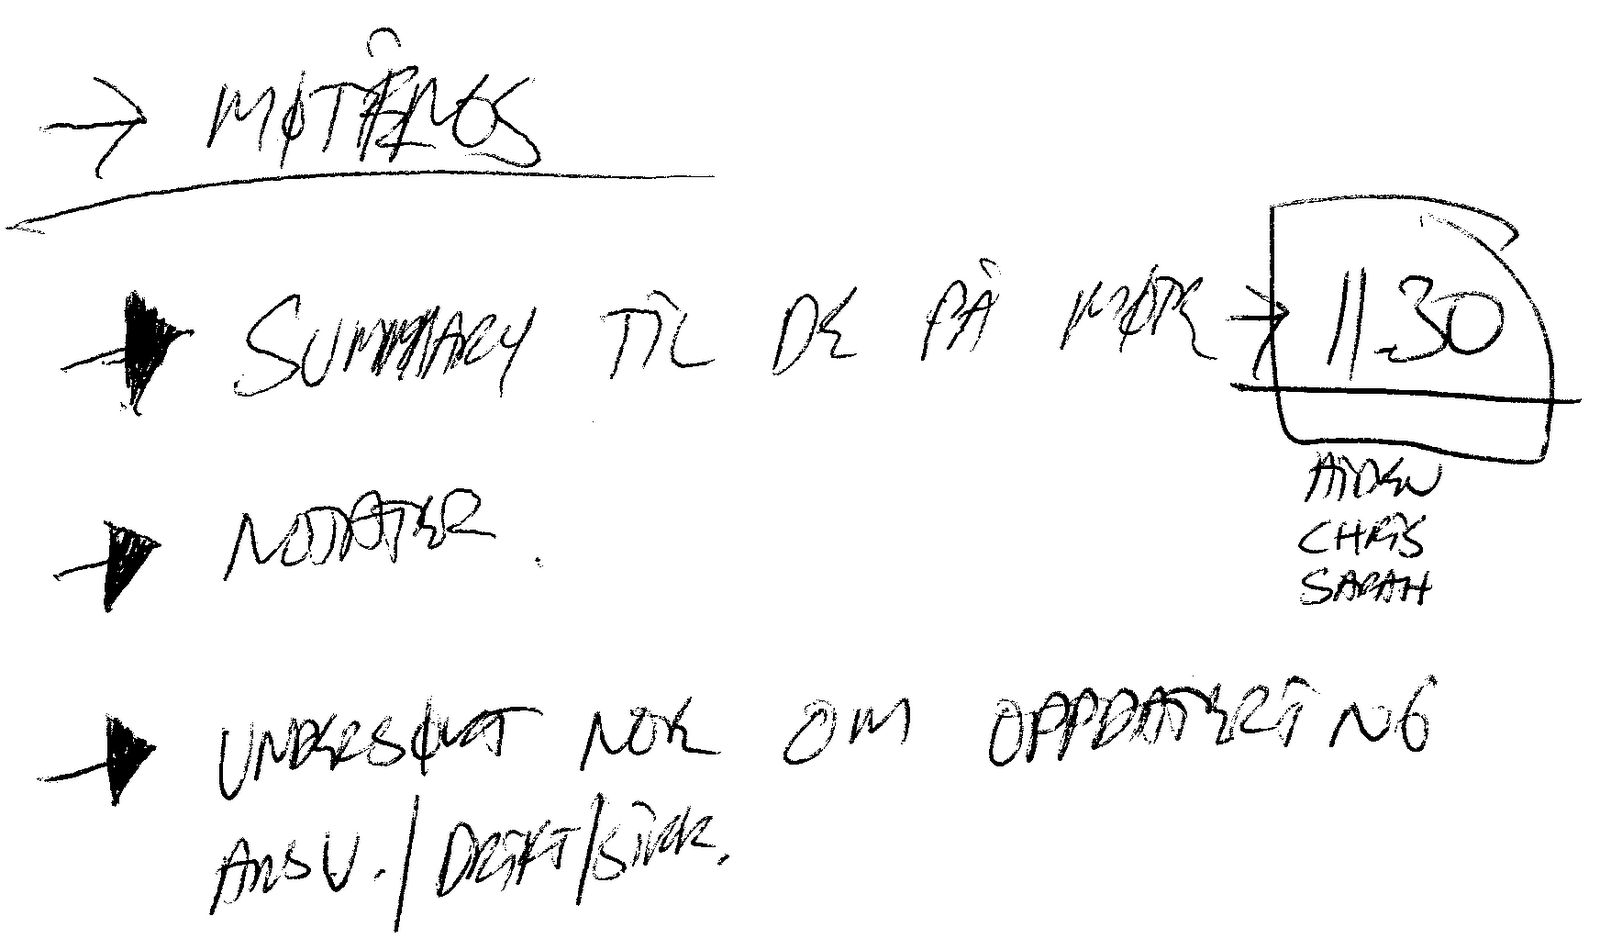 → MØTER
→ SUMMARY TIL DE PÅ MØTE → 11.30
AIDEN
CHRIS
SARAH
→ NOTATER.
→ UNDERSØKT NOE OM OPPDATERING
ANSV. / DRIFT / SIKK.